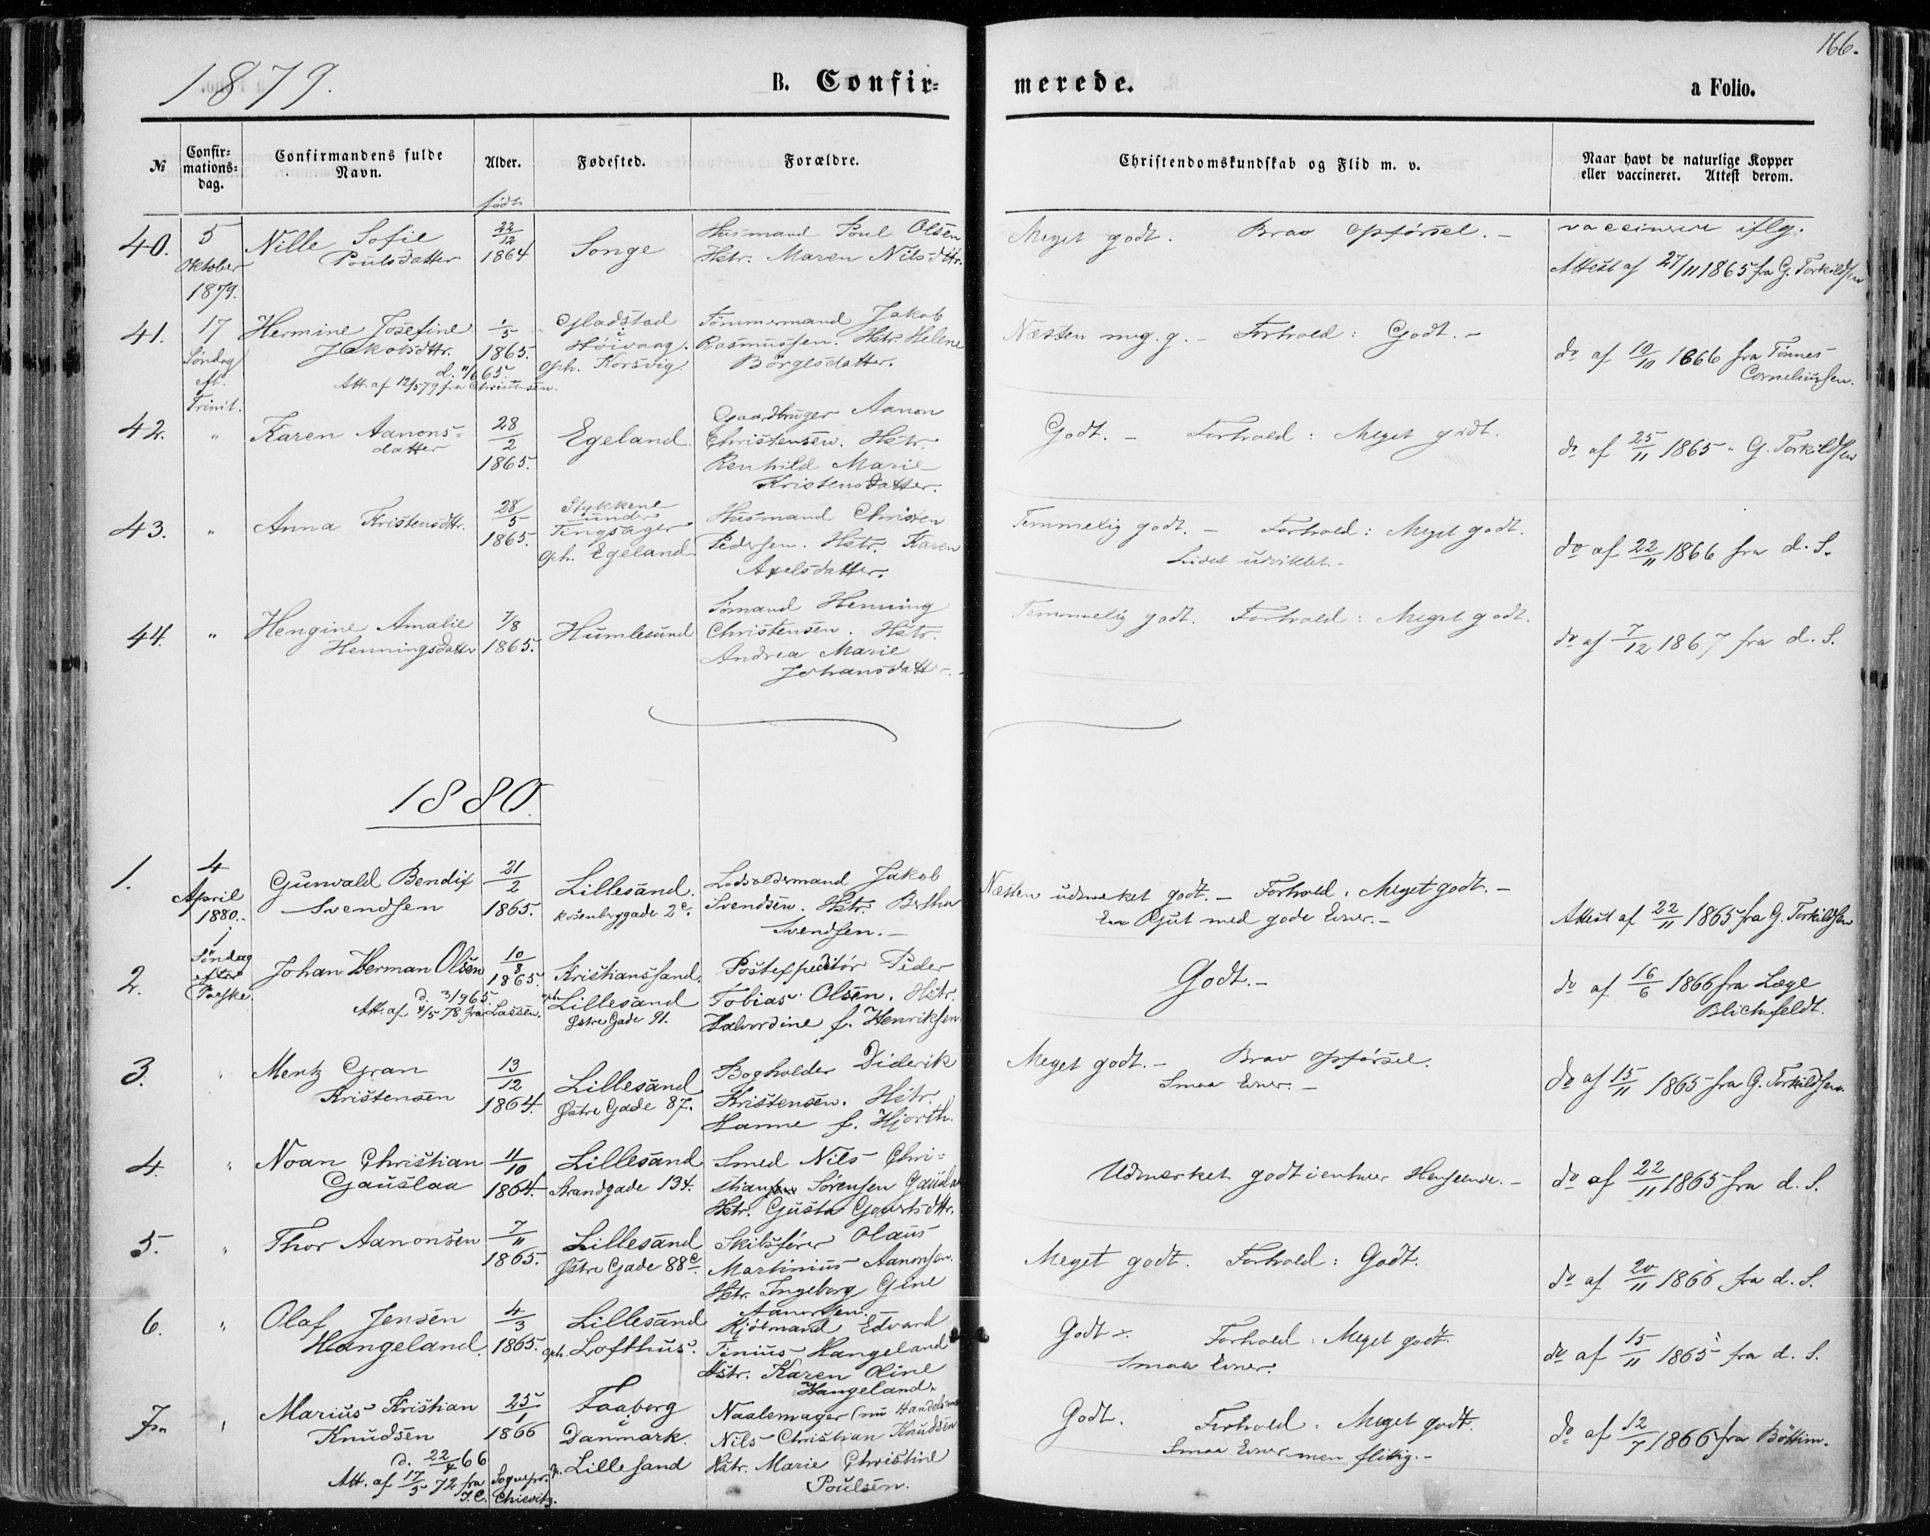 166.
1879.
B. Confir-
merede.
a Folio.
№
Confir-
mations-
dag.
Confirmandens fulde
Navn.
Alder.
Fødested.
Forældre.
Christendomskundskab og Flid m. v.
Naar havt de naturlige Kopper
eller vaccineret. Attest derom.
født
40.
5
Oktober
1879.
Nille Sofie
Poulsdatter
22/12
1864
Songe
Husmand Poul Olsen
Hstr. Maren Nilsdttr.
Meget godt. Brav Opførsel. -
vaccineret iflg.
Attest af 27/11 1865 fra G. Torkildsen
41.
17
Søndag
eft.
Trinit.
Hermine Josefine
Jakobsdttr.
Att. af 12/5 79 fra Christensen.
1/5
1865.
Gladstad
i
Høivaag.
Oph. Korsvig.
Tømmermand Jakob
Rasmussen. Hstr. Helene
Börgesdatter.
Næsten meg. g. - Forhold: Godt. -
do af 10/10 1866 fra Tønnes
Corneliussen.
42.
"
Karen Aanons-
datter
28/2
1865.
Egeland.
Gaardbruger Aanon
Christensen. Hstr.
Renhild Marie
Kristensdatter.
Godt. - Forhold: Meget godt.
do af 25/11 1865 " G. Torkildsen
43.
"
Anna Kristensdttr.
28/5
1865.
Stykkene
under
Tingsager
Oph. Egeland.
Husmand Christen
Pedersen. Hstr. Karen
Axelsdatter.
Temmelig godt. - Forhold: Meget godt.
Lidet udviklet. -
do af 22/11 1866 fra d. S.
44.
"
Hengine Amalie
Henningsdatter
7/8
1865.
Humlesund
Sömand Henning
Christensen. Hstr.
Andrea Marie
Johansdatt -
Temmelig godt. Forhold: Meget godt.
do af 7/12 1867 fra d. S.
1880.
1.
4
April
1880.
1
Søndag
efter
Paaske.
Gunvald Bendix
Svendsen
21/2
1865.
Lillesand.
Rosenberggade 2c.
Lodsoldermand Jakob
Svendsen. Hstr. Bertha
Svendsen. -
Næsten udmærket godt. - Forhold: Meget godt. -
En Gut med gode Evner. -
Attest af 22/11 1865 fra G. Torkildsen
2.
Johan Herman Olsen
d. 3/9 65.
Att. af 4/5 78 fra Lassen.
10/8
1865.
Kristianssand.
oph. Lillesand
Østre Gade 91.
Postexpeditör Peder
Tobias Olsen. Hstr.
Halvordine f. Henriksen.
Godt. -
do af 16/6 1866 fra Læge
Blichfeldt.
3.
"
Mentz Gran
Kristensen
13/12
1864.
Lillesand
Østre Gade 87.
Bogholder Diderik
Kristensen. Hstr.
Hanne f. Hjorth.
Meget godt. - Brav Opførsel.
Smaa Evner. -
do af 15/11 1865 fra G. Torkildsen.
4.
"
Noan Christian
Gauslaa
11/10
1864.
Lillesand
Strandgade 134.
Smed Nils Chri-
stian Sörensen Gauslaa
Hstr. Gusta
Udmærket godt i enhver Henseende. -
do af 22/11 1865 fra d. S.
5.
"
Thor Aanonsen
7/11
1865.
Lillesand
Østre Gade 88c.
Skibsfører Olaus
Martinius Aanonsen.
Hstr. Ingeborg Gine
Aanonsen.
Meget godt. Forhold: Godt.
do af 20/11 1866 fra d. S.
6.
"
Olaf Jensen
Hangeland.
4/3
1865.
Lillesand
oph. Lofthus.
Kjöbmand Edvard
Tinius Hangeland
Hstr. Karen Oline
Hangeland.
Godt. Forhold: Meget godt.
Smaa Evner.
do af 15/11 1865 fra d. S.
7.
"
Marius Kristian
Knudsen
d. 22/4 66
Att. af 17/5 72 fra Sognepr.
J. C. Chievitz.
25/1
1866
Faaborg
i
Danmark.
Lillesand
Naalemager (nu
Nils Christian Knudsen
Hstr. Marie Christine
Poulsen.
Godt. Forhold: Meget godt.
Smaa Evner, men flittig. -
do af 12/7 1866 fra